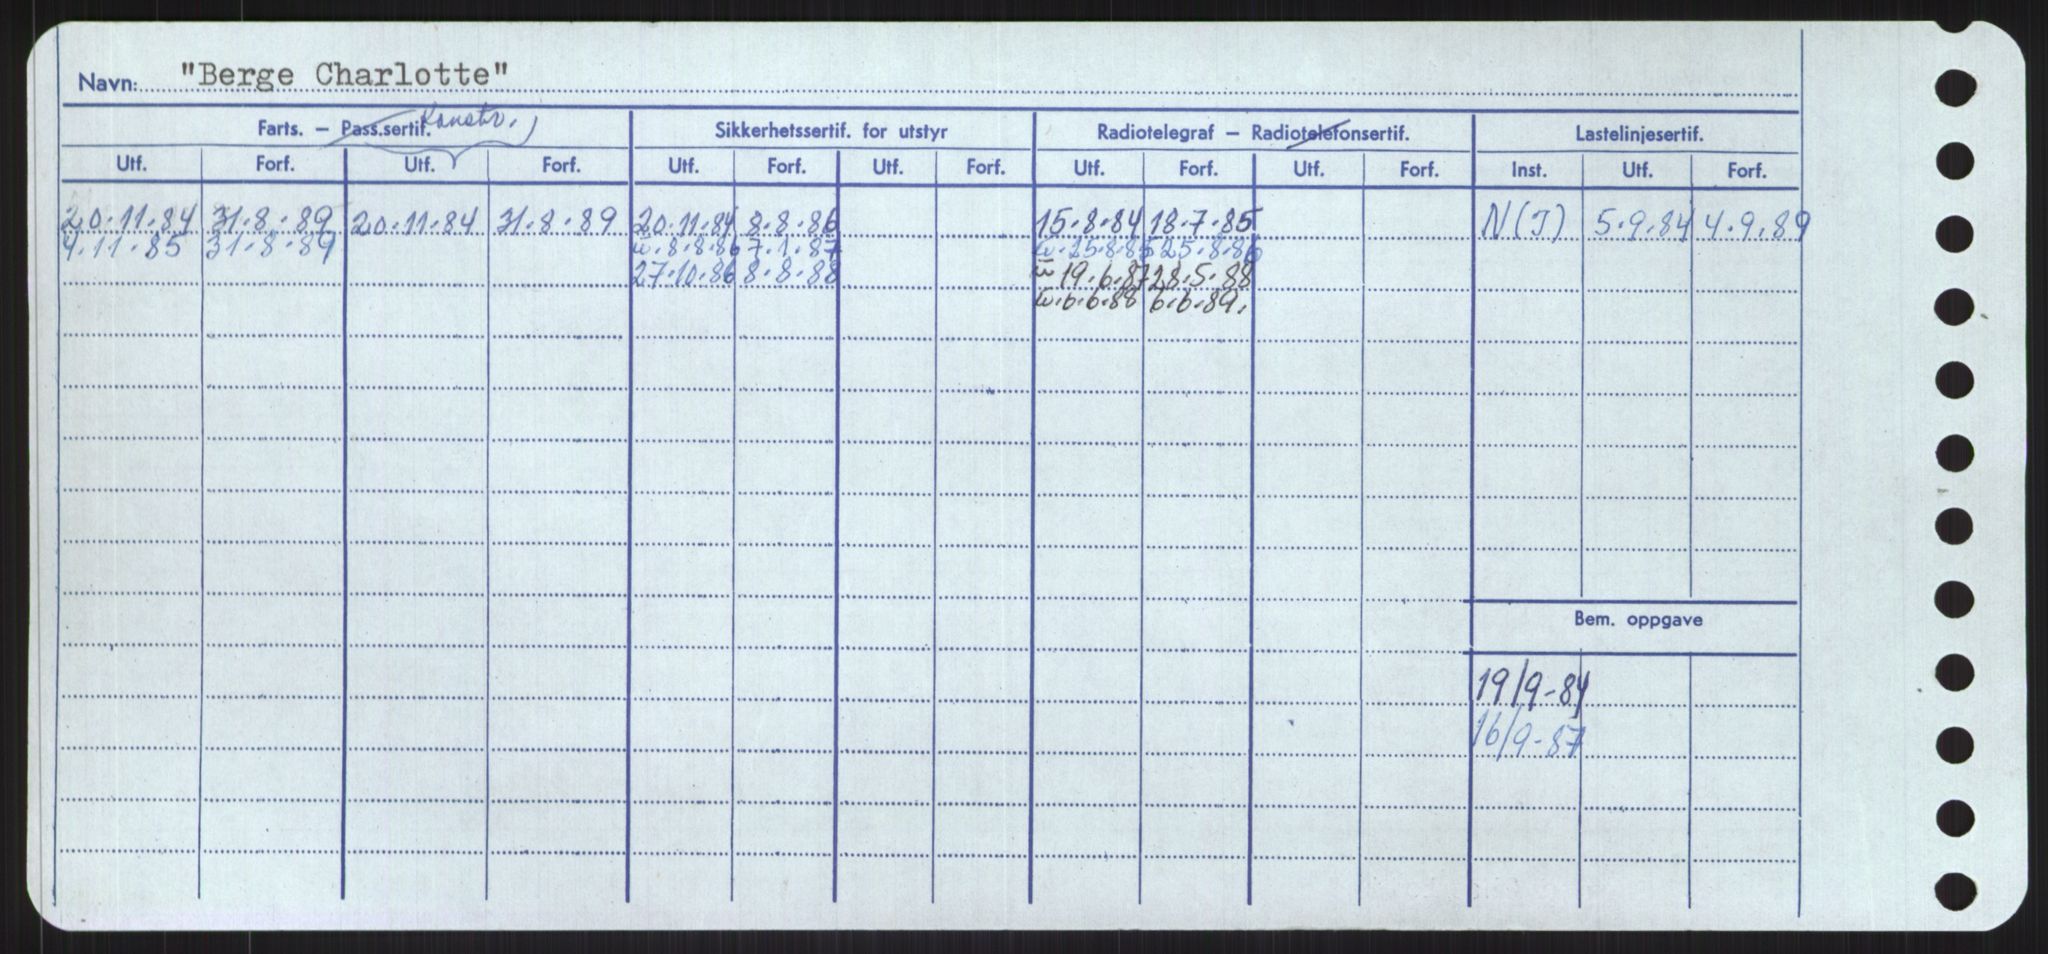 Navn: "Berge Charlotte"
Farts. – Pass.sertif. Konstr. Sikkerhetssertif. for utstyr Radiotelegraf – Radiotelefonsertif. Lastelinjesertif.
Utf. Forf. Utf. Forf. Utf. Forf. Utf. Forf. Utf. Forf. Utf. Forf. Inst. Utf. Forf.
20.11.84 31.8.89 20.11.84 31.8.89 20.11.84 8.8.86 15.8.84 18.7.85 N(I) 5.9.84 4.9.89
4.11.85 31.8.89 ū.8.8.86 7.1.87 ū.25.8.85 25.8.86
27.10.86 8.8.88 ū 19.6.87 28.5.88
ū.6.6.88 6.6.89.
Bem. oppgave
19/9-84
16/9-87